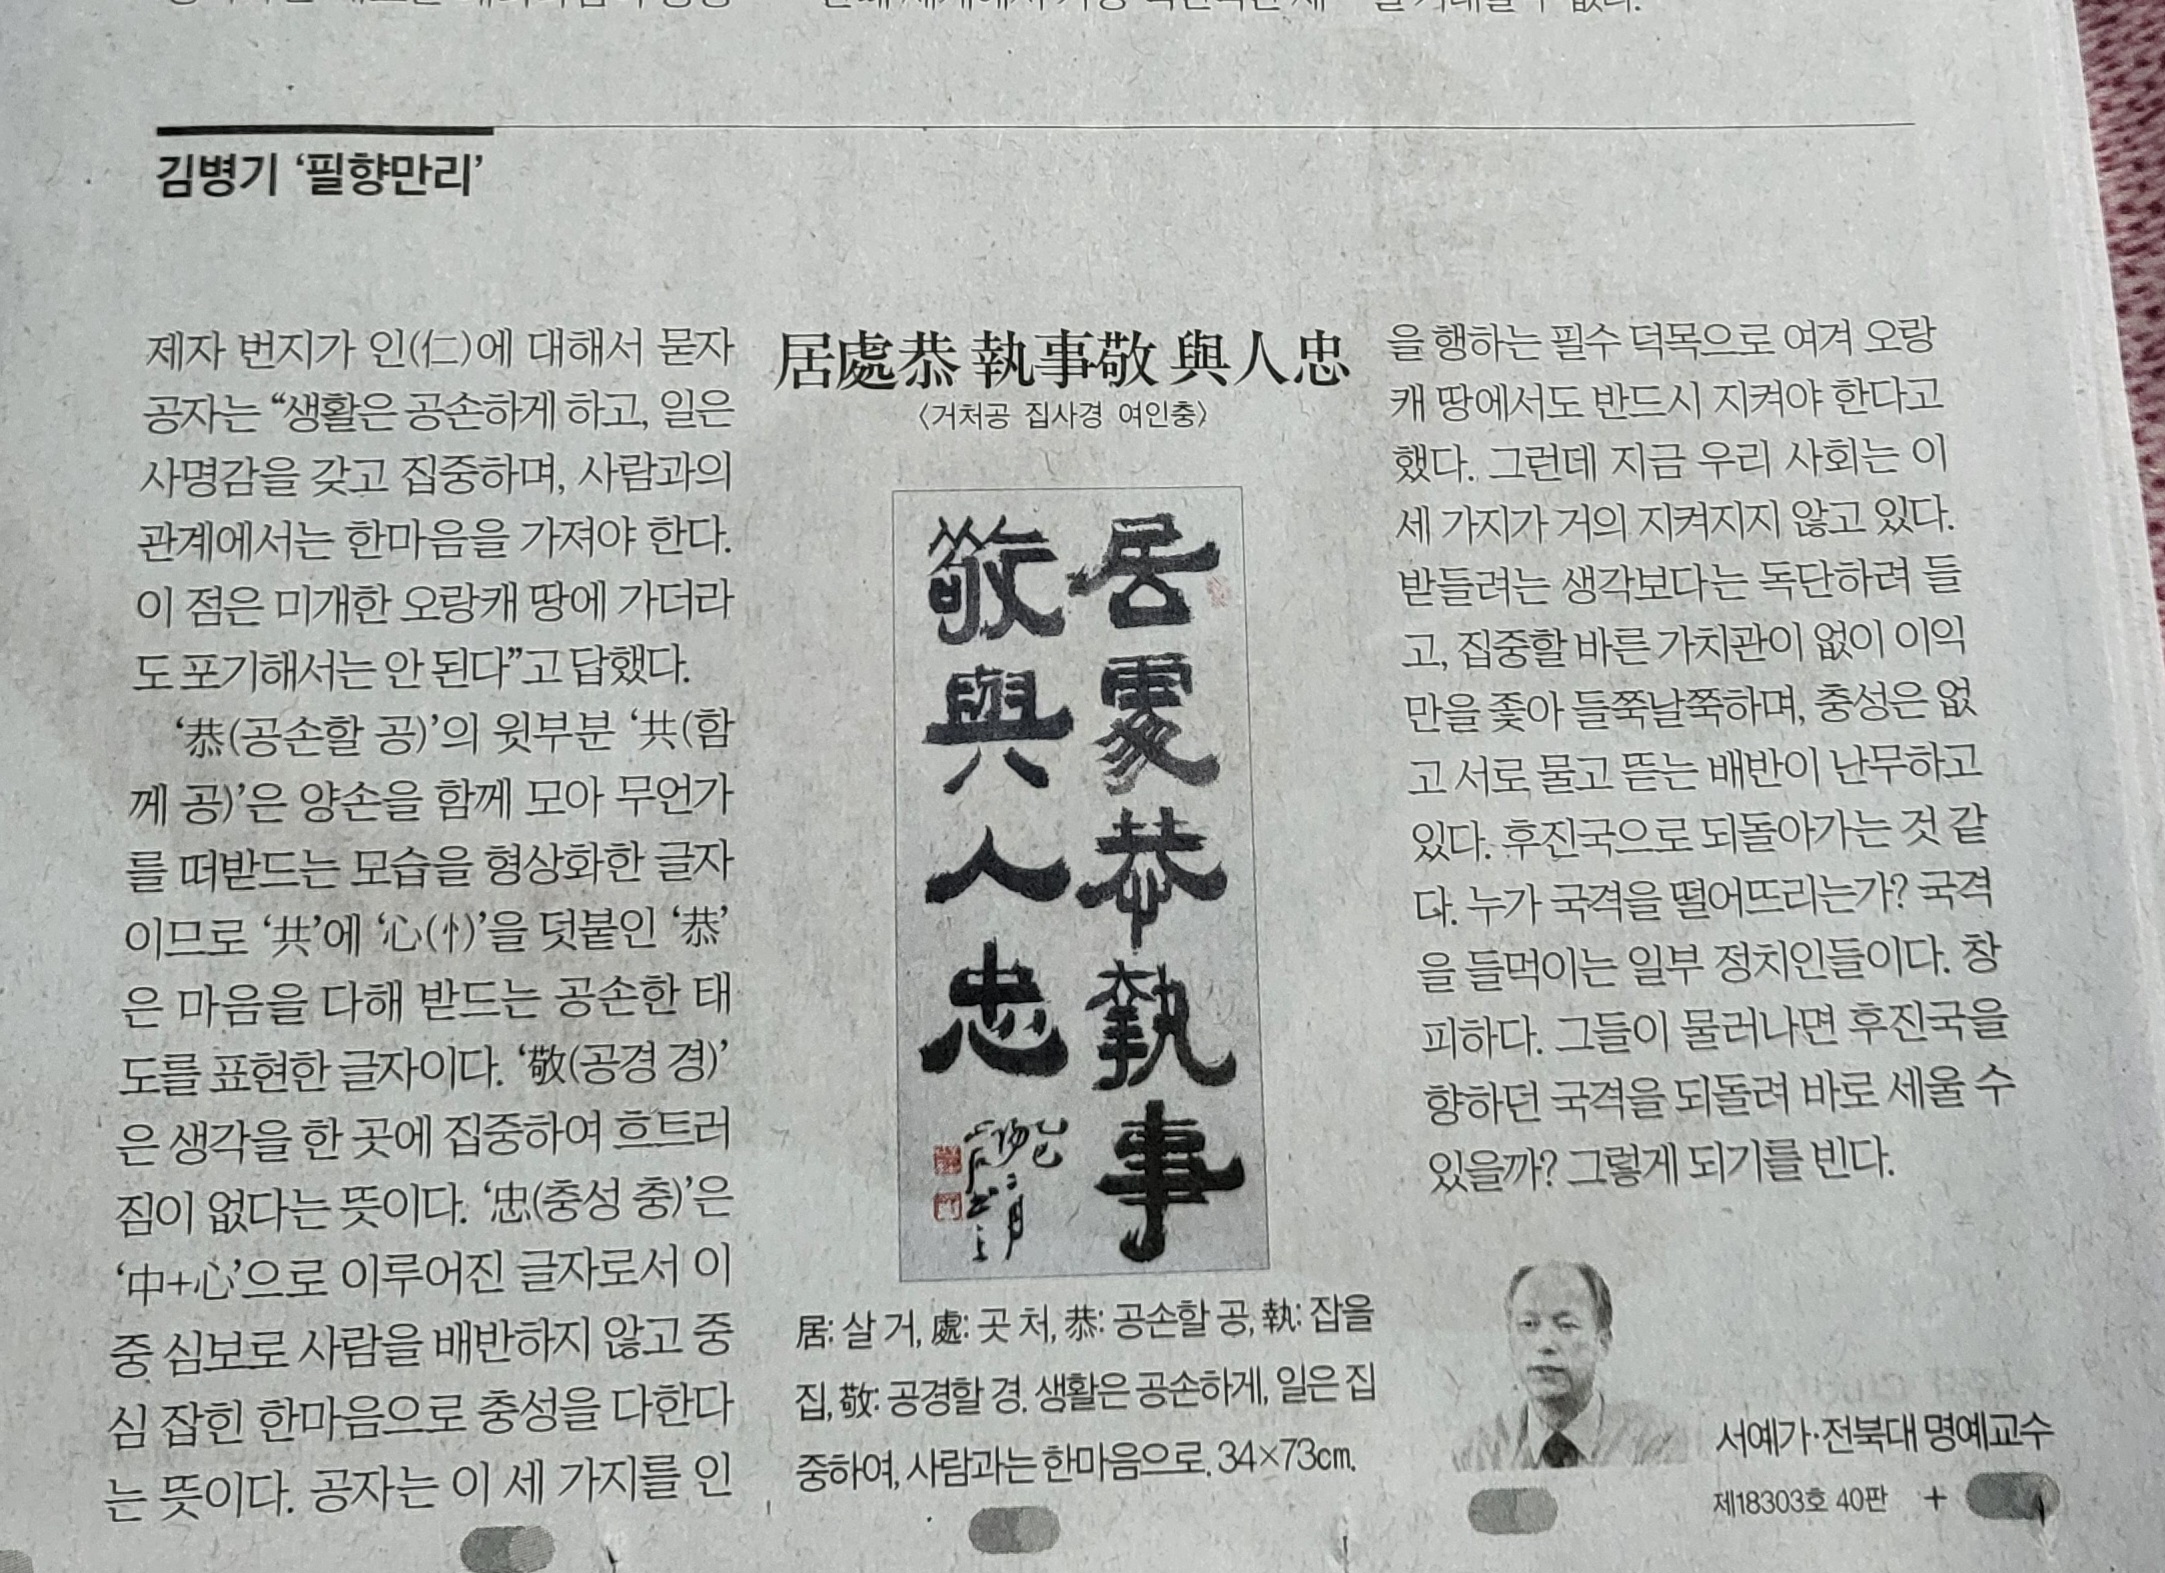 김병기 '필향만리'
제자 번지가 인(仁)에 대해서 묻자
공자는 “생활은 공손하게 하고, 일은
사명감을 갖고 집중하며, 사람과의
관계에서는 한마음을 가져야 한다.
이 점은 미개한 오랑캐 땅에 가더라
도 포기해서는 안 된다”고 답했다.
‘恭(공손할 공)’의 윗부분 ‘共(함
께 공)’은 양손을 함께 모아 무언가
를 떠받드는 모습을 형상화한 글자
이므로 ‘共’에 ‘心(忄)’을 덧붙인 ‘恭’
은 마음을 다해 받드는 공손한 태
도를 표현한 글자이다. ‘敬(공경 경)’
은 생각을 한 곳에 집중하여 흐트러
짐이 없다는 뜻이다. ‘忠(충성 충)’은
‘中+心’으로 이루어진 글자로서 이
중 심보로 사람을 배반하지 않고 중
심 잡힌 한마음으로 충성을 다한다
는 뜻이다. 공자는 이 세 가지를 인
居處恭 執事敬 與人忠
〈거처공 집사경 여인충〉
居處恭執事
敬與人忠
居: 살 거, 處: 곳 처, 恭: 공손할 공, 執: 잡을
집, 敬: 공경할 경. 생활은 공손하게, 일은 집
중하여, 사람과는 한마음으로. 34×73㎝.
을 행하는 필수 덕목으로 여겨 오랑
캐 땅에서도 반드시 지켜야 한다고
했다. 그런데 지금 우리 사회는 이
세 가지가 거의 지켜지지 않고 있다.
받들려는 생각보다는 독단하려 들
고, 집중할 바른 가치관이 없이 이익
만을 좇아 들쭉날쭉하며, 충성은 없
고 서로 물고 뜯는 배반이 난무하고
있다. 후진국으로 되돌아가는 것 같
다. 누가 국격을 떨어뜨리는가? 국격
을 들먹이는 일부 정치인들이다. 창
피하다. 그들이 물러나면 후진국을
향하던 국격을 되돌려 바로 세울 수
있을까? 그렇게 되기를 빈다.
서예가·전북대 명예교수
제18303호 40판 +